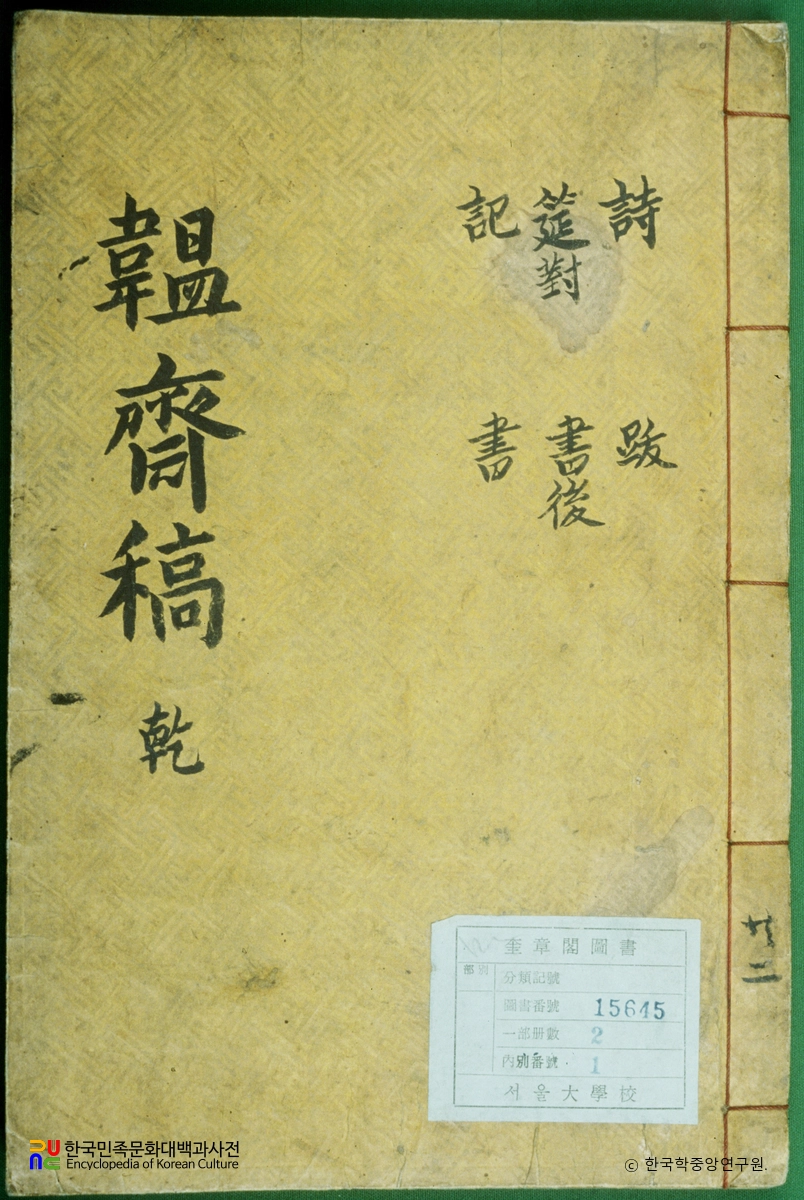 詩 跋
筵對 書後
記 書
韞齋稿 乾
共二
奎章閣圖書
部別
分類記號
圖書番號 15645
一部册數 2
內別番號 1
서울大學校
한국민족문화대백과사전
Encyclopedia of Korean Culture
© 한국학중앙연구원.